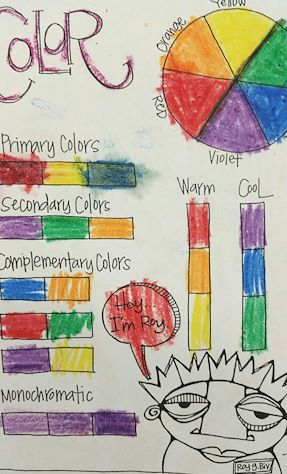 COLOR
Yellow
Orange
RED
Violet
Primary Colors
Warm
Cool
Secondary Colors
Complementary Colors
Hey...
I'm Roy.
Monochromatic
Roy G. Biv